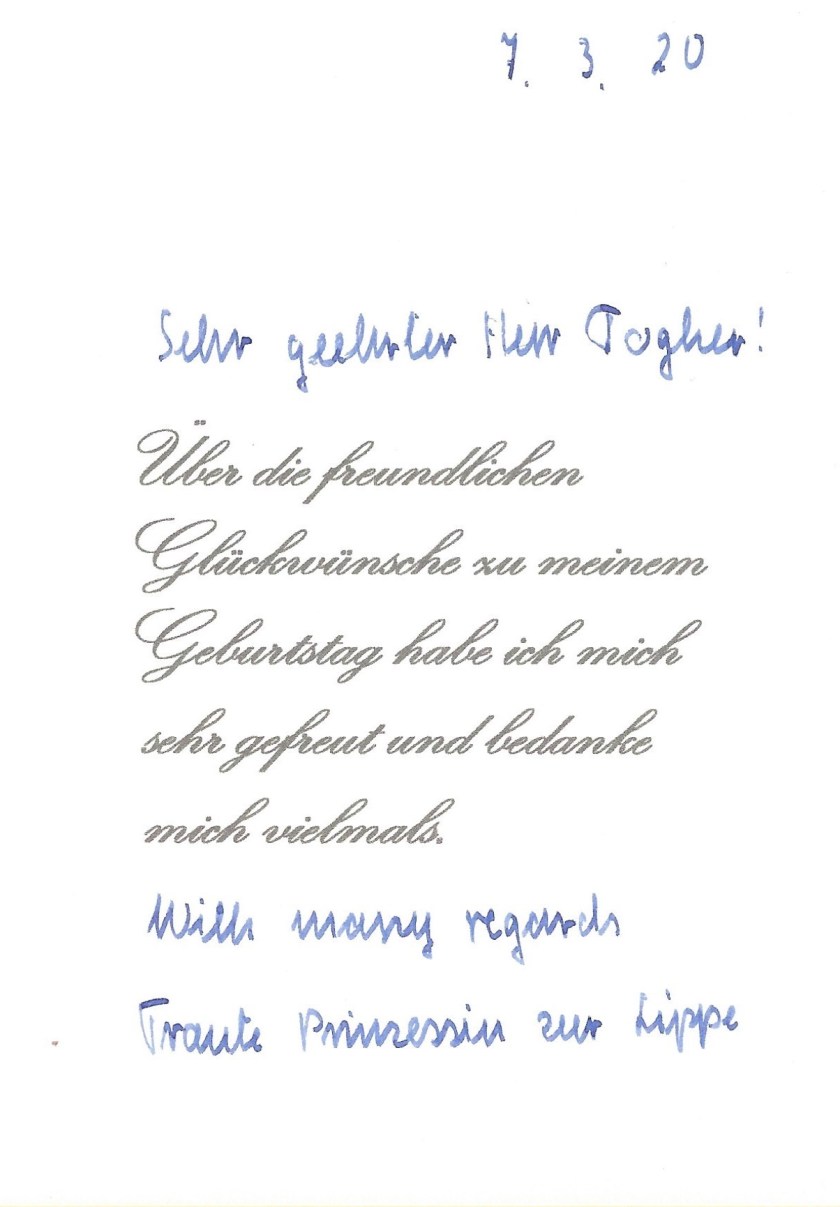 7. 3. 20
Sehr geehrter Herr Togher!
Über die freundlichen
Glückwünsche zu meinem
Geburtstag habe ich mich
sehr gefreut und bedanke
mich vielmals.
With many regards
Traute Prinzessin zur Lippe